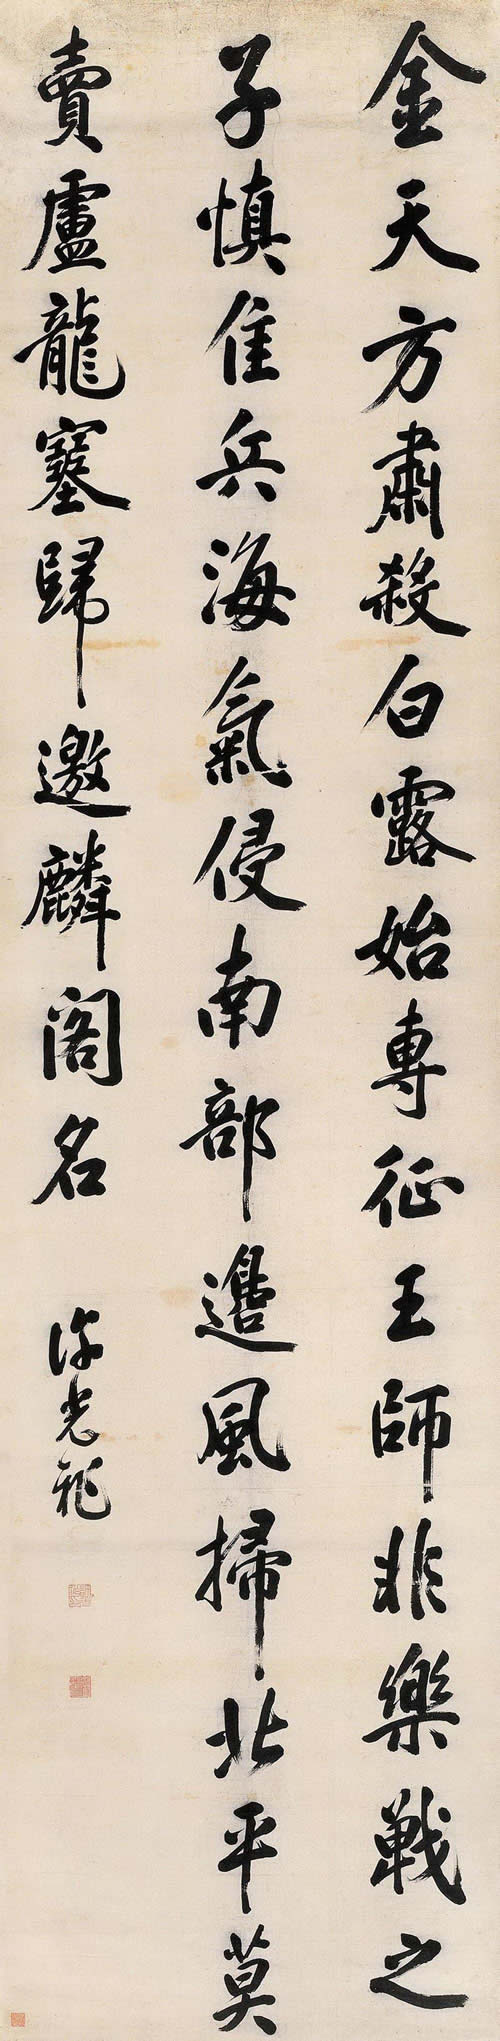 金天方肅殺白露始專征王師非樂戰之
子慎隹兵海氣侵南部邊風掃北平莫
賣盧龍塞歸邀麟閣名
光祚